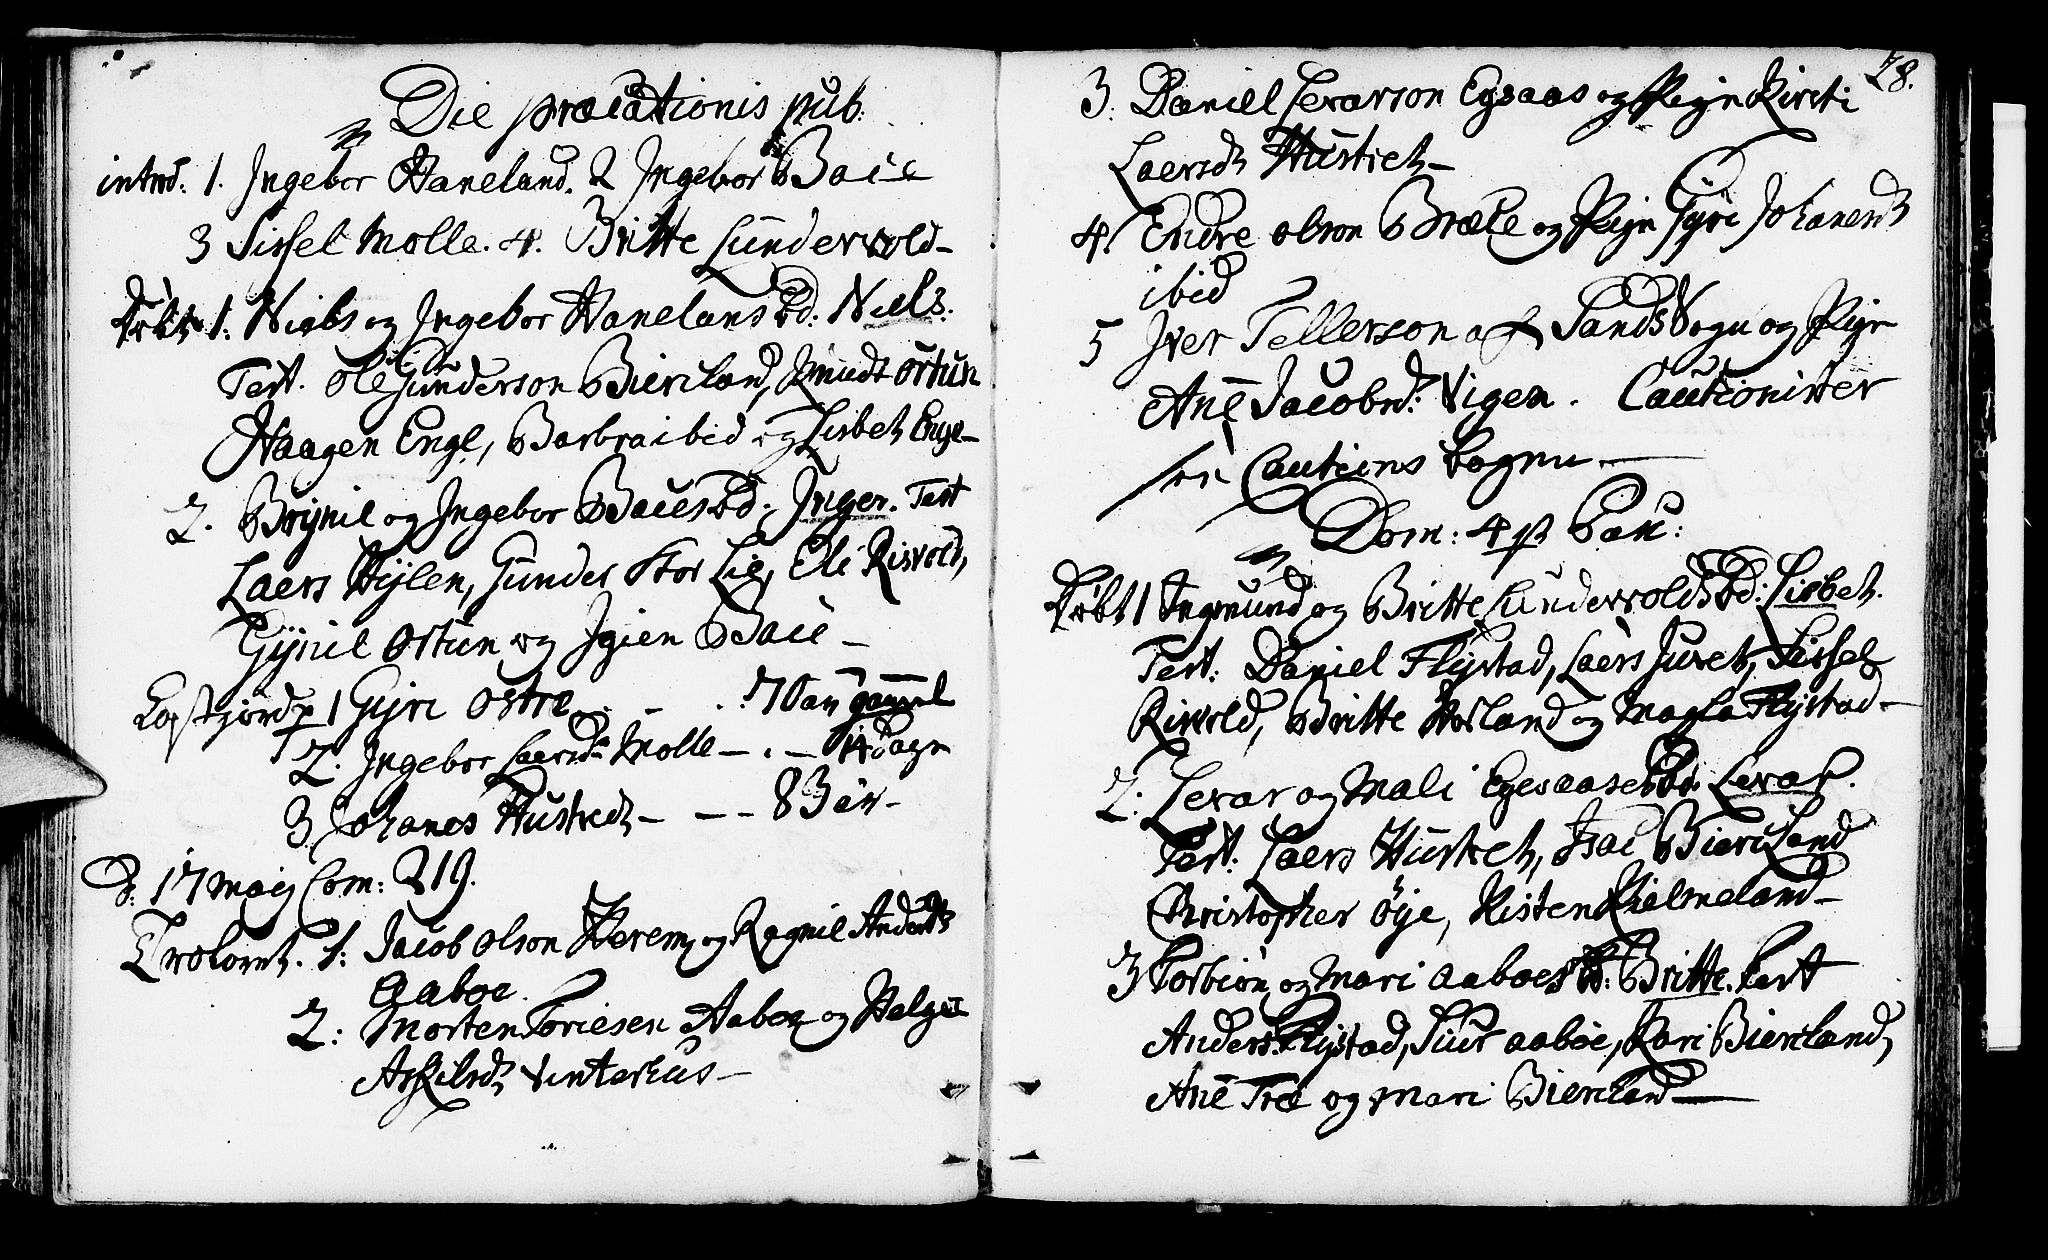 Die precationis pub:
intrd: 1. Ingebor Haneland. 2 Ingebor Bace
3 Sissel Molle. 4. Britte Lundervold
Døbt 1: Niels og Ingebor Hanelans bd: Niels:
Test. Ole Gunderson Biereland, Knudt Ortun
Haagen Enge, Barbra ibid og Lisbet Enge
2. Brynil og Ingebor Baces bd: Inger. Test
Laers Hylen, Gunder Stor Lie, Eli Risvold,
Gynil Ortun og Bace
1 Gyri Ostre . . 70 aar gammel
2. Ingebor Laersd. Molle - . - 14 dage
3 Johanes Hustvedt - - - 8 Bar
D: 17 Maij Com: 219.
Trolovet. 1: Jacob Olson Herem og Ragnil Andersdt
Aaboe.
2: Morten Toriesen Aaboe og Helge
Askilsdt Vinterhus
28.
3. Daniel Levarson Egsaas og Pign Kirsti
Laersdt Hustvet
4. Endre Olson Bræke og Pign Gyri Johanesdt
ibid
5 Iver Tellerson af Sands Sogn og Pign
Ane Jacobsd: Vigen. Cautionister
Cautions bogen
Dom: 4 p Pasc:
Døbt 1 Ingmund og Britte Lundervolds bd: Lisbet.
Test: Daniel Flystad, Laers Juvet, Sissel
Risvold, Britte Horland og Magla Flystad
2: Levar og Mali Egesaases bd. Levar.
Test: Laers Hustvet, Isac Biereland
Christopher Øye, Kisten Hielmeland
3 Torbiørn og Mari Aaboes b: Britte. Test
Anders Flystad, Siur Aaboe, Kari Biereland,
Ane Træ og Mari Biereland